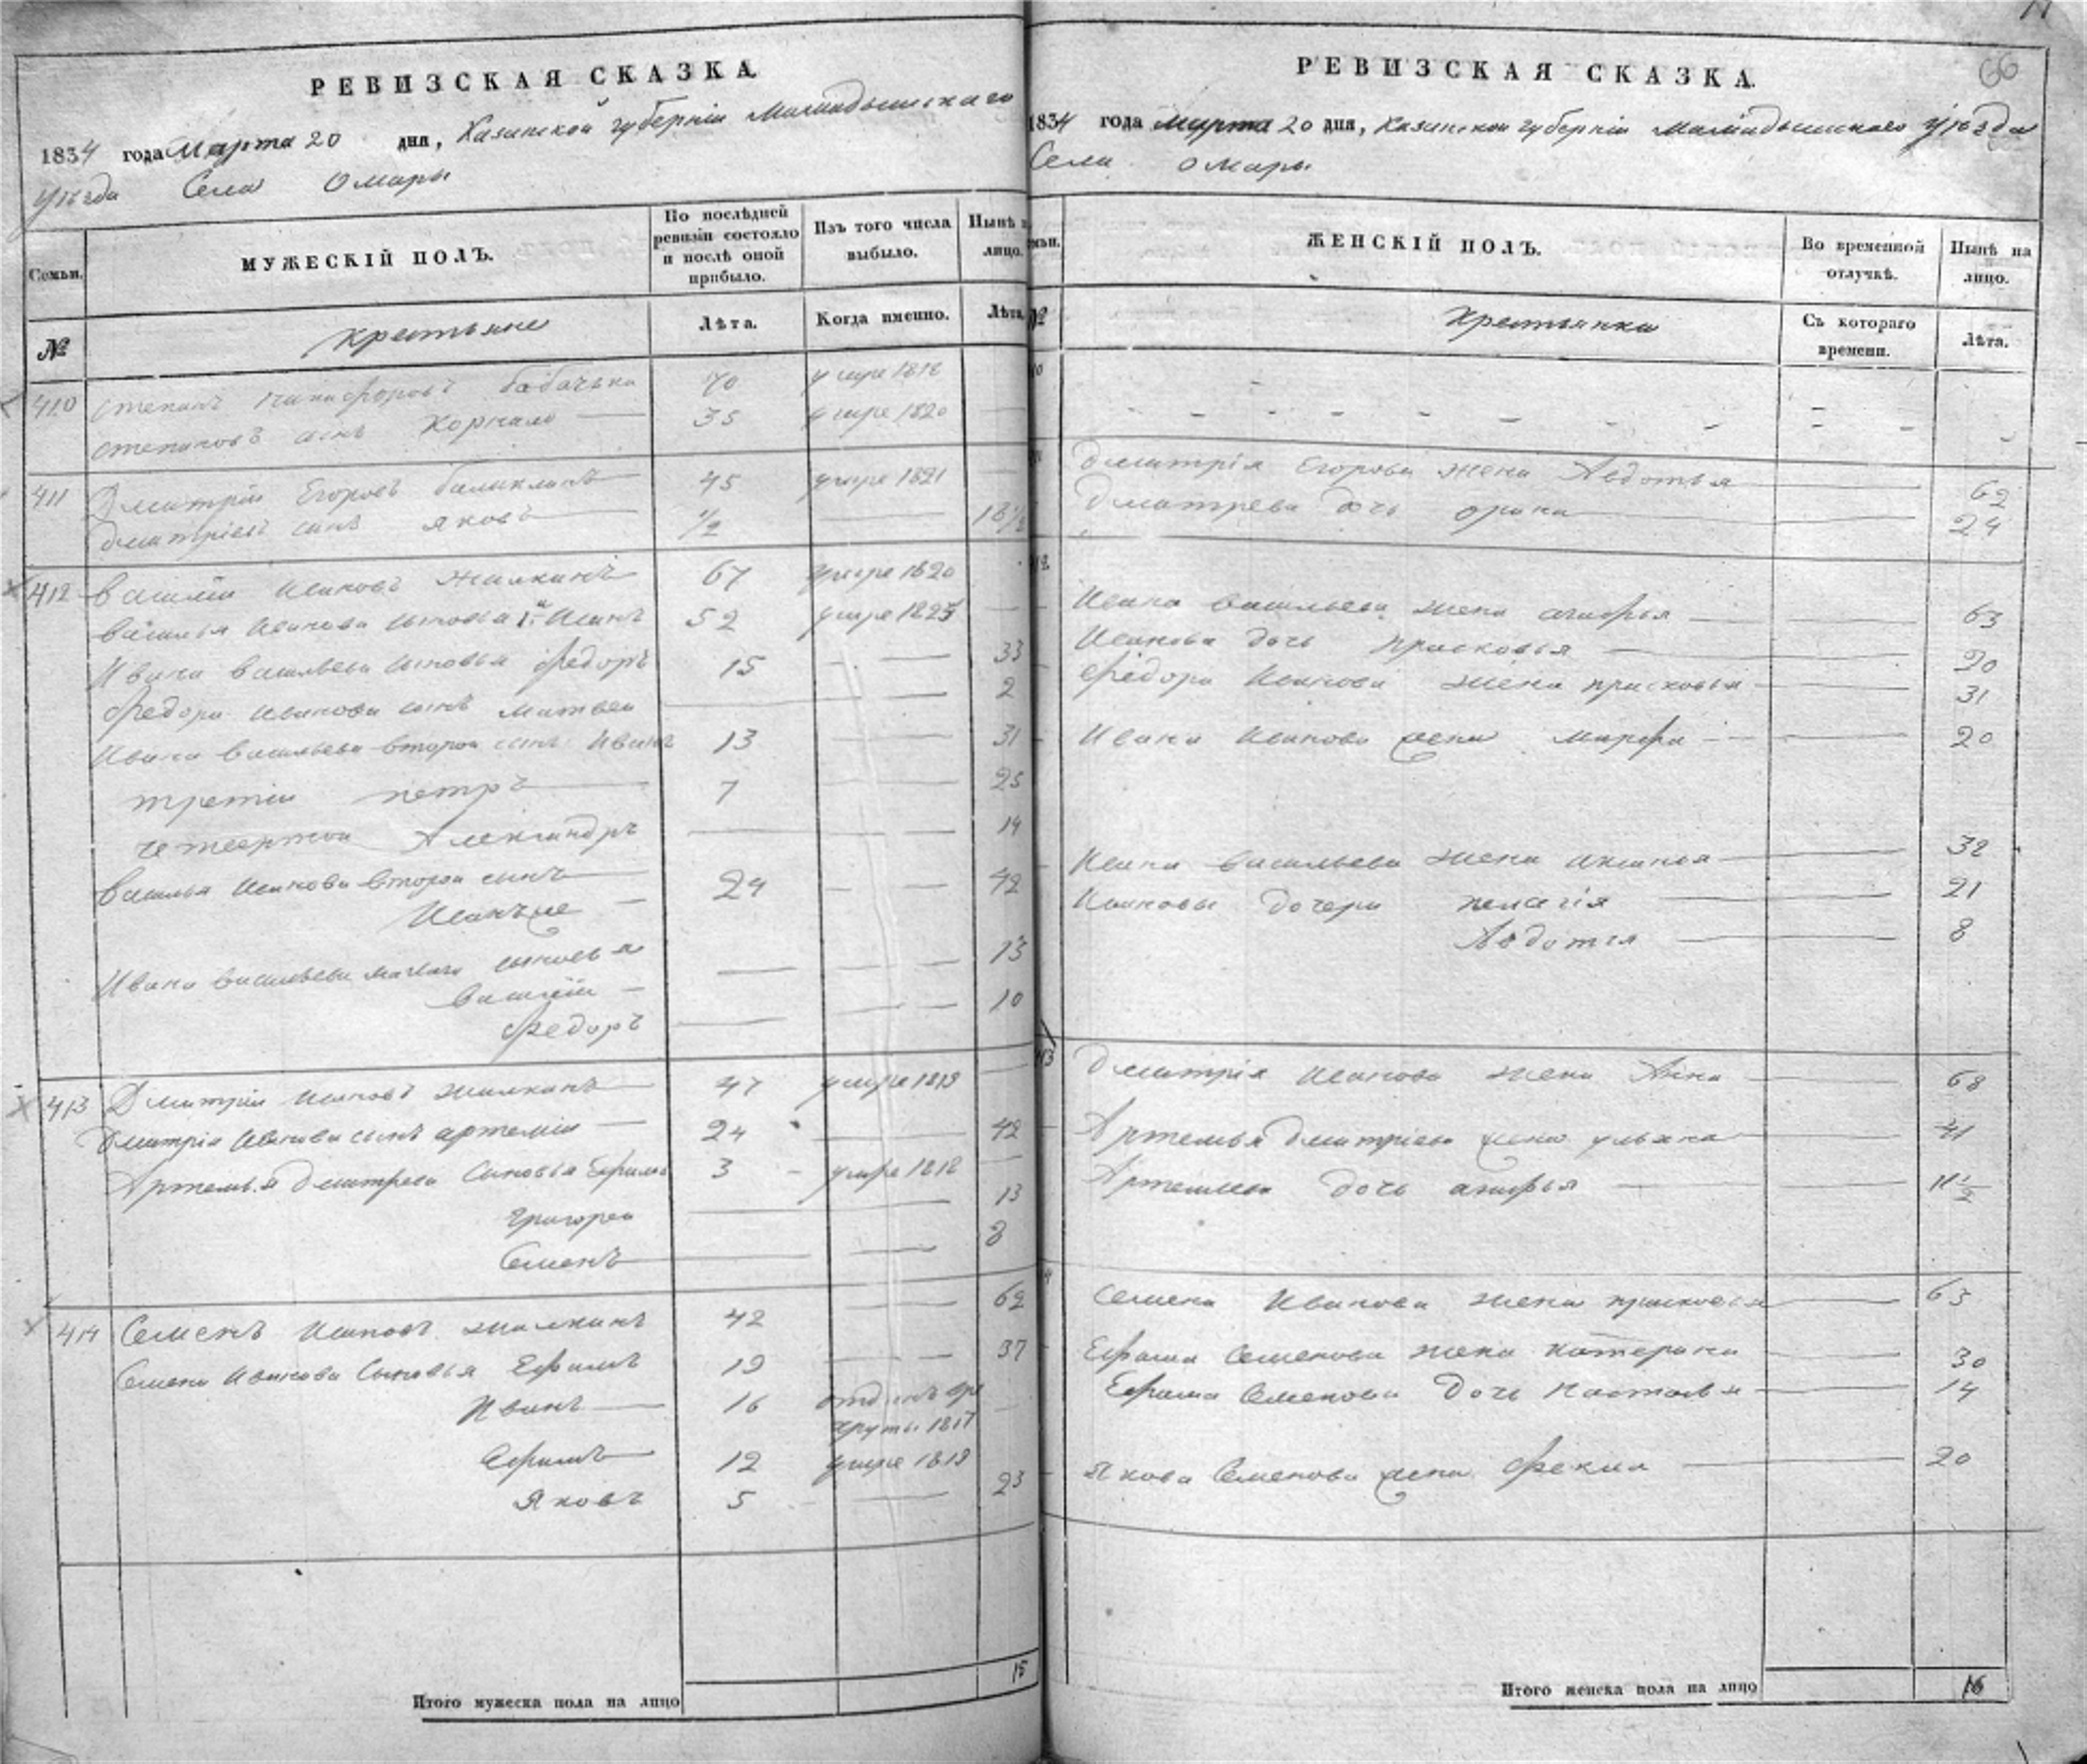 РЕВИЗСКАЯ СКАЗКА
1834 года Марта 20 дня, Казанской губерніи Мамадышскаго
уѣзда Села Омары
Семьи.
МУЖЕСКІЙ ПОЛЪ.
По послѣдней ревизіи состояло и послѣ оной прибыло.
Изъ того числа выбыло.
Нынѣ на лицо.
№
крестьяне
Лѣта.
Когда именно.
Лѣта.
410 Степанъ Никифоровъ 70 умре 1818
Степановъ сынъ Корнило 35 умре 1820
411 Дмитрій Егоровъ 45 умре 1821
Дмитріевъ сынъ Яковъ 1/2 18 1/2
412 Василій Ивановъ Жилкинъ 67 умре 1820
Василья Иванова сыновья 1й Иванъ 52 умре
Ивана Васильева сыновья Федоръ 15 33
Федора Иванова сынъ Матвей 2
Ивана Васильева второй сынъ Иванъ 13 31
третій Петръ 7 25
четвертой Александръ 14
Василья Иванова второй сынъ 24 42
Иванъ же
Ивана Васильева сыновья 13
Василій
Федоръ 10
413 Дмитрій Ивановъ Жилкинъ 47 умре 1819
Дмитрія Иванова сынъ Артемій 24 42
Артемья Дмитрева сыновья Ефимъ 3 умре 1818
Григорей 13
Семенъ 8
414 Семенъ Ивановъ Жилкинъ 42 62
Семена Иванова сыновья Ефимъ 19 37
Иванъ 16 отданъ в ре
круты 1817
Ефимъ 12 умре 1819
Яковъ 5 23
Итого мужеска пола на лицо 15
66
РЕВИЗСКАЯ СКАЗКА.
1834 года Марта 20 дня, Казанской губерніи Мамадышскаго уѣзда
Села Омары
ЖЕНСКІЙ ПОЛЪ.
Во временной отлучкѣ.
Нынѣ на лицо.
№
Крестьянки
Съ котораго времени.
Лѣта.
Дмитрія Егорова жена Авдотья 62
Дмитрева дочь Орина 24
Ивана Васильева жена Агафья 63
Иванова дочь Прасковья 20
Федора Иванова жена Прасковья 31
Ивана Иванова жена Марфа 20
Ивана Васильева жена Аксинья 32
Ивановы дочери Пелагія 21
Авдотья 8
413 Дмитрія Иванова жена Анна 68
Артемья Дмитріева жена Ульяна 41
Артемьева дочь Агафья 11 1/2
Семена Иванова жена Прасковья 63
Ефима Семенова жена Катерина 30
Ефима Семенова дочь Наталья 14
Якова Семенова жена Фекла 20
Итого женска пола на лицо 16